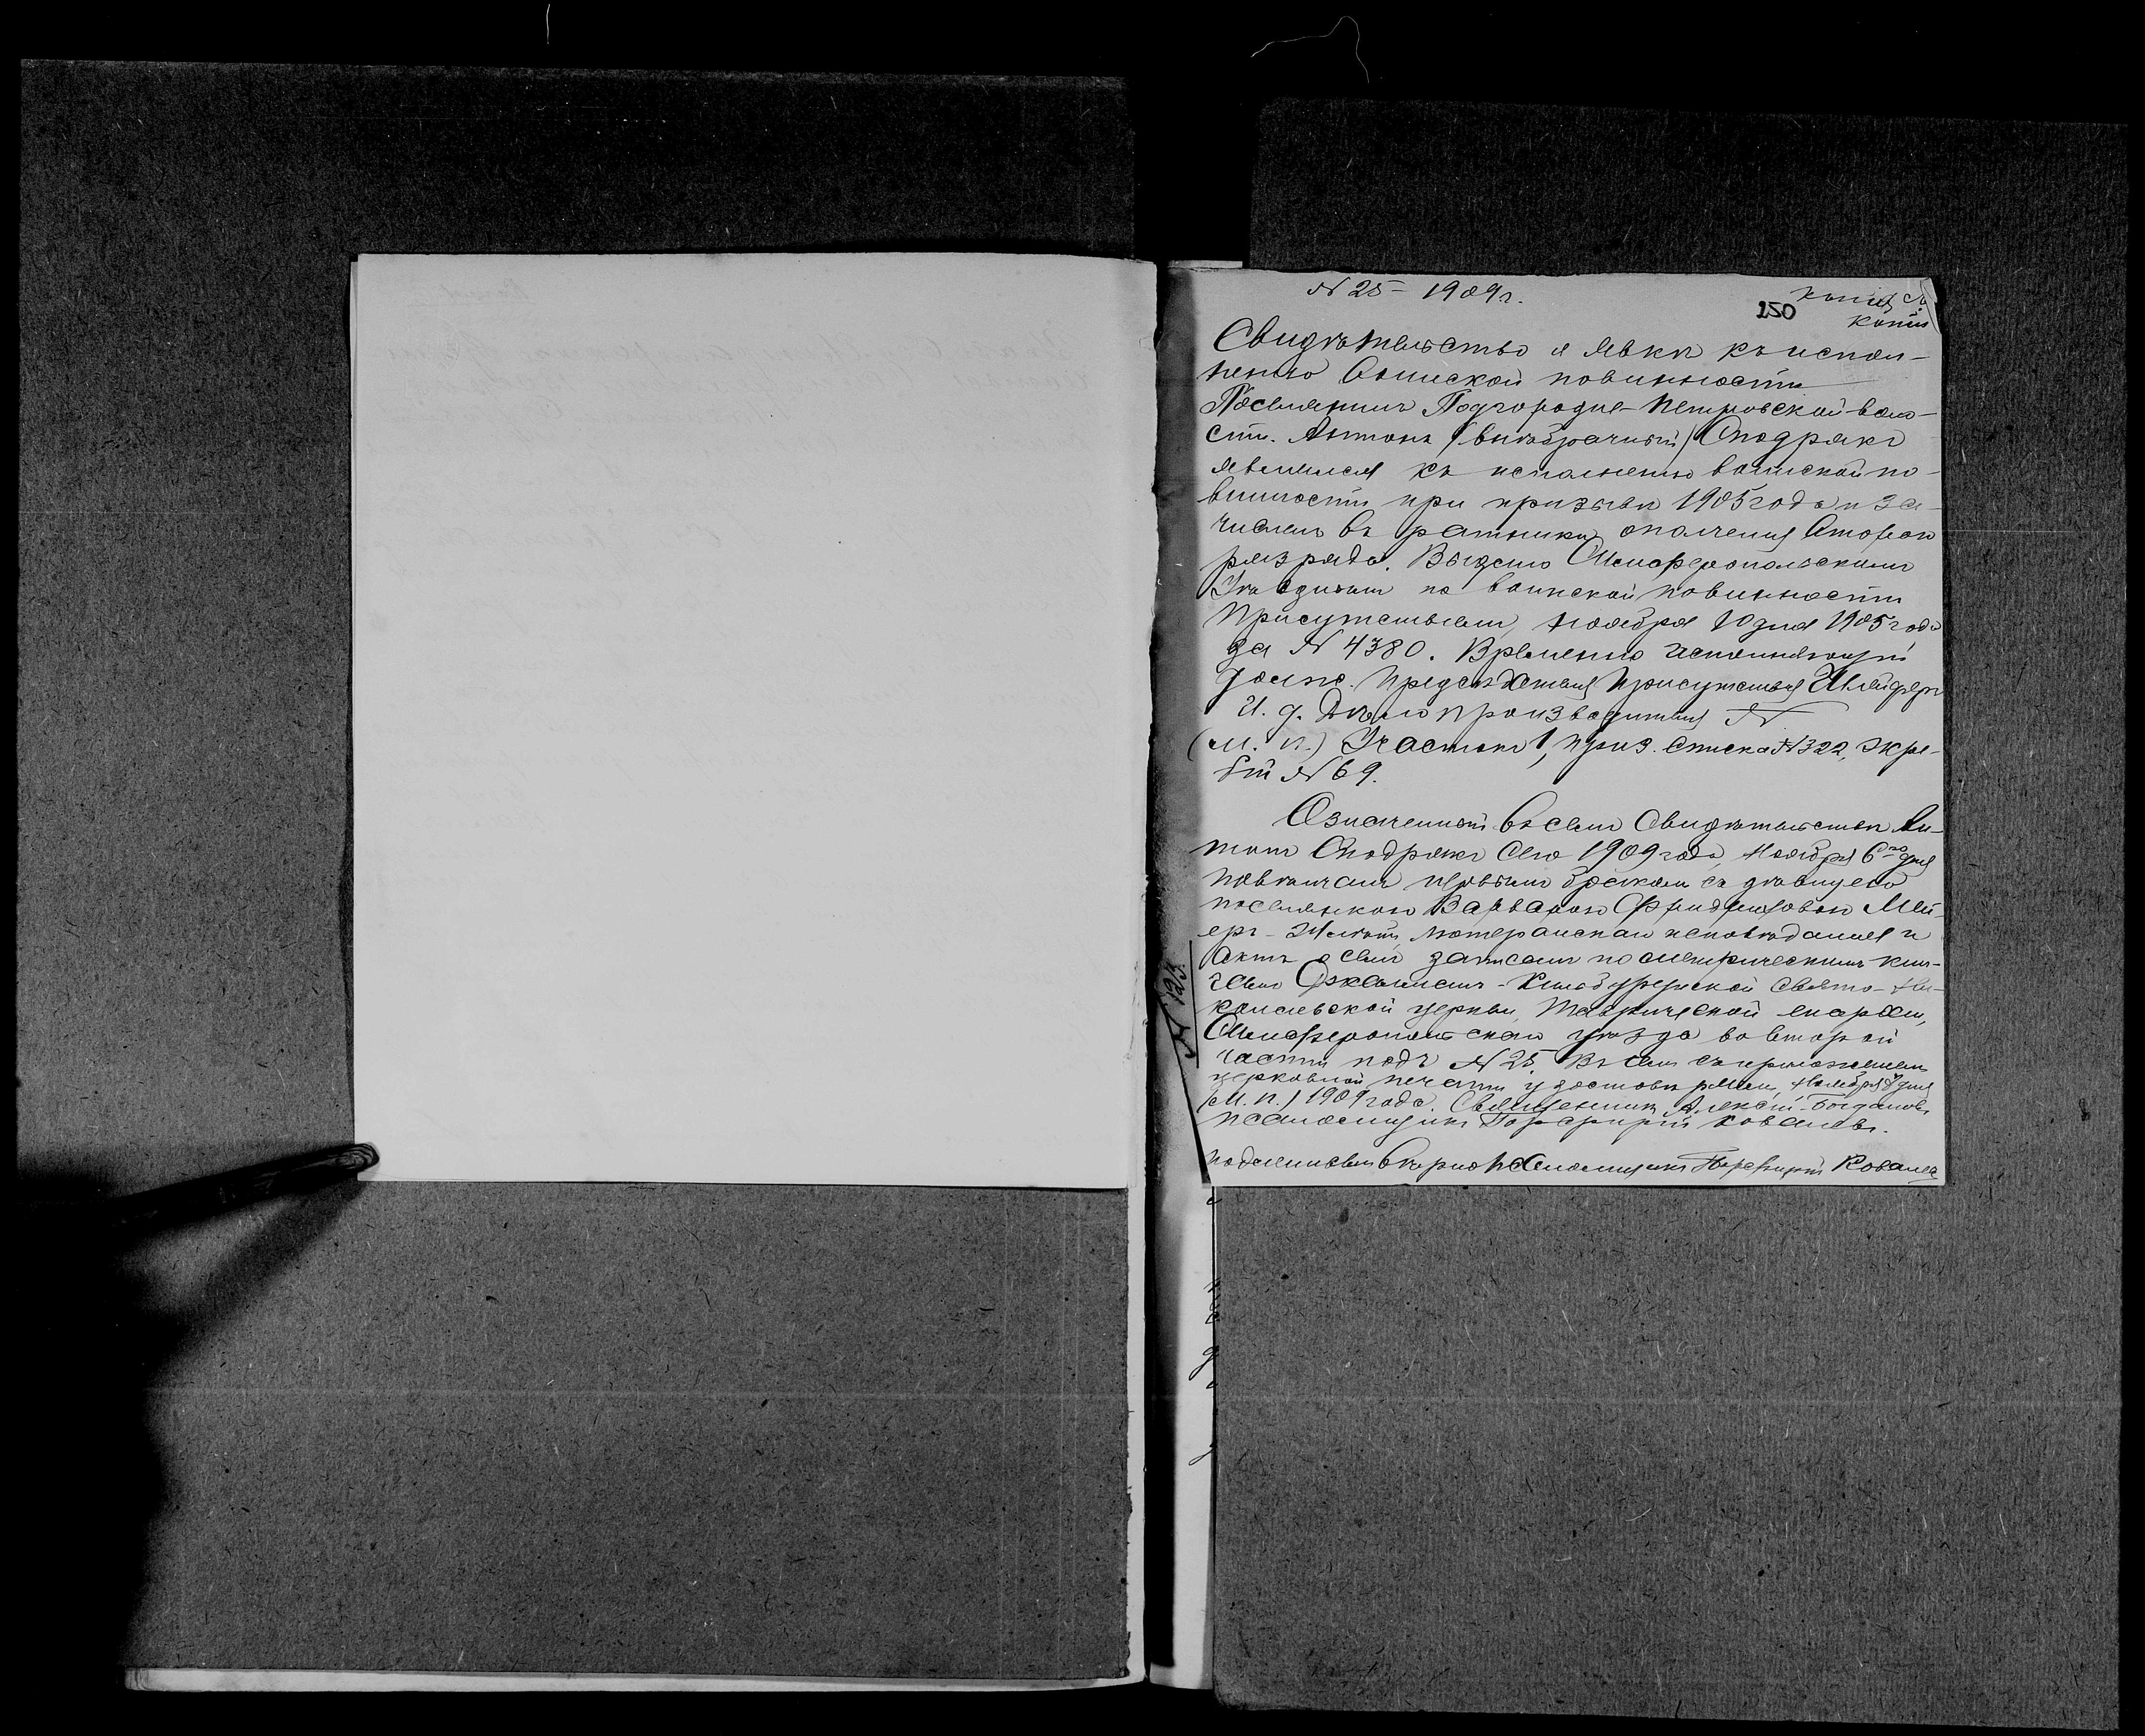 № 25 – 1909 г.
копія съ
копіи
150
Свидѣтельство о явкѣ къ испол-
ненію воинской повинности
Поселянинъ Подгородне-Петровской воло-
сти. Антонъ (внѣбрачный) Сподрякъ
явлился къ исполненію воинской по-
винности при призывѣ 1905 года и за-
численъ въ ратники ополченія второго
разряда. Выдано Симферопольскимъ
Уѣзднымъ по воинской повинности
Присутствіемъ, ноября 10 дня 1905 года
за № 4380. Временно исполняющій
долж. Предсѣдателя Присутствія
И. д. Дѣлопроизводителя
(М. П.) Участокъ 1, приз. списка № 322, жре-
бій № 69.
Означенный въ семъ Свидѣтельствѣ Ан-
тонъ Сподрякъ сего 1909 года, Ноября 6го дня
повѣнчанъ первымъ бракомъ съ дѣвицею
поселянкою Варварою Фридриховою Мей-
еръ лютеранскаго исповѣданія и
актъ о семъ записанъ по метрическимъ кни-
гамъ Свято-Ни-
колаевской церкви, Таврической епархіи,
Симферопольскаго уѣзда во второй
части подъ № 25. Въ чемъ съ приложеніемъ
церковной печати удостовѣряемъ, Ноября 8 дня
(М. П.) 1909 года. Священникъ Алексій Богдановъ
псаломщикъ Порфирій Ковалевъ.
№ 123
Съ подлиннымъ вѣрно Псаломщикъ Порфирій Ковалевъ